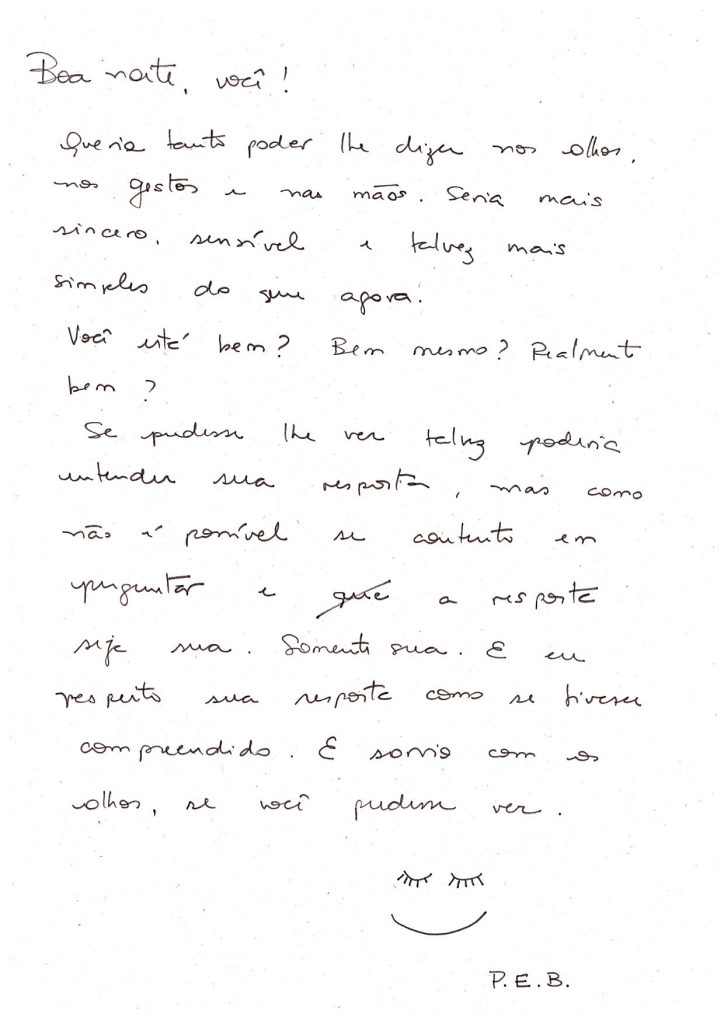 Boa noite, você!
Queria tanto poder lhe dizer nos olhos,
nos gestos e nas mãos. Seria mais
sincero, sensível e talvez mais
simples do que agora.
Você está bem? Bem mesmo? Realmente
bem?
Se pudesse lhe ver talvez poderia
entender sua resposta, mas como
não é possível me contento em
perguntar e que a resposta
seja sua. Somente sua. E eu
respeito sua resposta como se tivesse
compreendido. E sorrio com os
olhos, se você pudesse ver.
P.E.B.